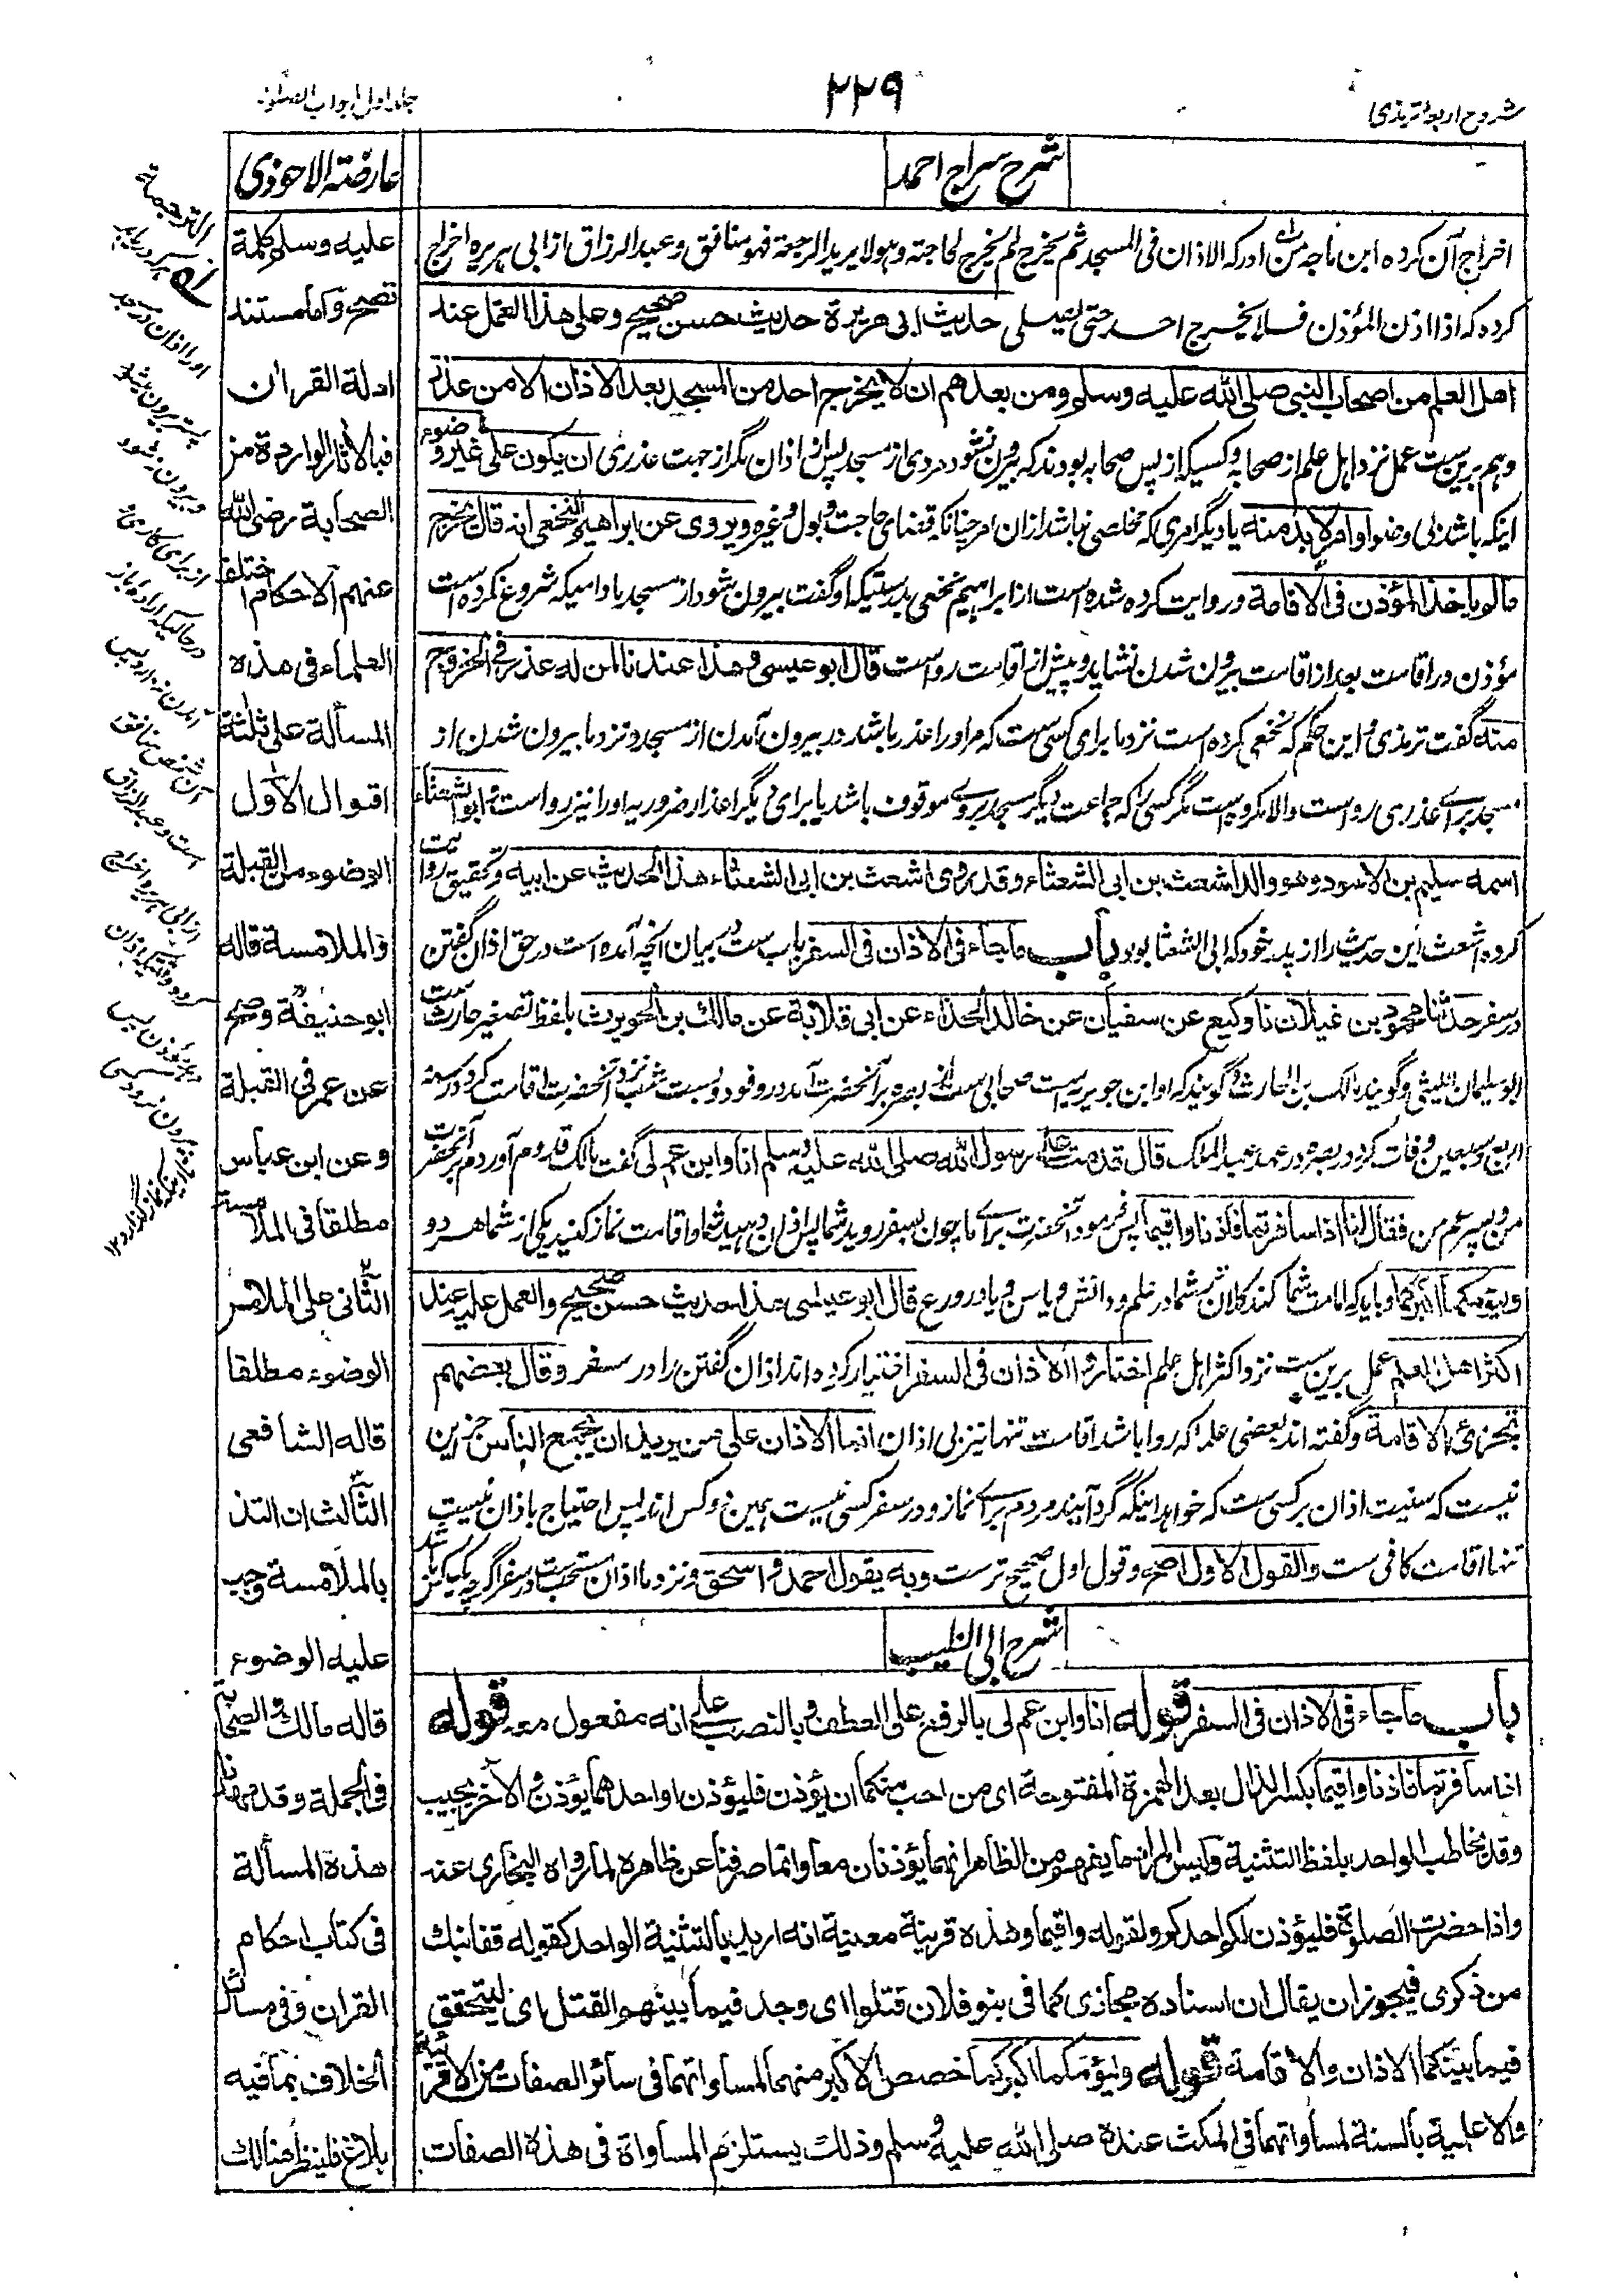 شروح اربعهٔ ترمذی
۲۲۹
جلد اول ابواب الصلوٰة
شرح سراج احمد
اخراج آن کرده ابن ماجه من ادرکه الاذان فی المسجد ثم یخرج لم یخرج لحاجته وهو لا یرید الرجعة فهو منافق و عبد الرزاق از ابی هریره اخراج
کرده که اذا اذن المؤذن فلا یخرج احد حتی یصلی حدیث ابی هریرة حدیث حسن صحیح وعلی هذا العمل عند
اهل العلم من اصحاب النبی صلی الله علیه وسلم ومن بعدهم ان لا یخرج احد من المسجد بعد الاذان الا من عذر
وهم برین ست عمل نزد اهل علم از صحابه و کسیکه از پس صحابه بودند که بیرون نشود مردی از مسجد پس از اذان مگر از جهت عذری ان یکون علی غیر وضوء
اینکه باشد بی وضو او امر لا بد منه یا دیگر امری که مخلصی نباشد ازان امر چنانکه قضای حاجت و بول و غیره ویروی عن ابراهیم النخعی انه قال یخرج
مالم یاخذ المؤذن فی الاقامة و روایت کرده شده است از ابراهیم نخعی بدرستیکه او گفت بیرون شود از مسجد مادامیکه شروع نکرده است
مؤذن در اقامت بعد از اقامت بیرون شدن نشاید و پیش از اقامت رواست قال ابو عیسی وهذا عندنا لمن له عذر فی الخروج
منه گفت ترمذی و این حکم که نخعی کرده است نزد ما برای کسی ست که مر او را عذر باشد در بیرون آمدن از مسجد و نزد ما بیرون شدن از
مسجد برای عذری رواست والا مکروه ست مگر کسی را که جماعت دیگر مسجد بروے موقوف باشد یا برای دیگر اعذار ضروریه او را نیز رواست و ابو الشعثاء
اسمه سلیم بن الاسود وهو والد اشعث بن ابی الشعثاء وقد روی اشعث بن ابی الشعثاء هذا الحدیث عن ابیه و تحقیق روایت
کرده اشعث این حدیث را از پدر خود که ابی الشعثا بود باب ماجاء فی الاذان فی السفر باب ست در بیان آنچه آمده است در حق اذان گفتن
در سفر حدثنا محمود بن غیلان نا وکیع عن سفیان عن خالد الحذاء عن ابی قلابة عن مالک بن الحویرث بلفظ تصغیر حارث ست
ابو سلیمان اللیثی و گویند مالک بن الحارث و گویند که او ابن جویریه است صحابی ست بصره بر آنحضرت آمد در وفود و بست شب نزد آنحضرت اقامت کرد در سنه
اربع و سبعین وفات کرد در بصره در عهد عبد الملک قال قدمت علی رسول الله صلی الله علیه وسلم انا وابن عم لی گفت مالک قدوم آوردم بر آنحضرت
من و پسر عم من فقال لنا اذا سافرتما فاذنا واقیما پس فرمود آنحضرت براے ما چون بسفر روید شما پس اذان دهید شما و اقامت نماز کنید یکی از شما هر دو
ولیؤمکما اکبرکما و باید که امامت شما کند کلان تر شما در علم و دانش و یا سن و یا در ورع قال ابو عیسی هذا حدیث حسن صحیح والعمل علیه عند
اکثر اهل العلم عمل برین ست نزد اکثر اهل علم اختاروا الاذان فی السفر اختیار کرده اند اذان گفتن را در سفر وقال بعضهم
تجزئ الاقامة و گفته اند بعضی علما که روا باشد اقامت تنها نیز بی اذان انما الاذان علی من یرید ان یجمع الناس جز این
نیست که سنیت اذان بر کسی ست که خواهد اینکه گرد آیند مردم برای نماز و در سفر کسی نیست همین دو کس اند پس احتیاج باذان نیست
تنها اقامت کافی ست والقول الاول اصح و قول اول صحیح ترست وبه یقول احمد واسحق و نزد ما اذان مستحب ست در سفر اگرچه یک کس باشد
شرح ابی الطیب
باب ماجاء فی الاذان فی السفر قوله انا وابن عم لی بالرفع علی العطف وبالنصب علی انه مفعول معه قوله
اذا سافرتما فاذنا واقیما بکسر الذال بعد الهمزة المفتوحة ای من احب منکما ان یؤذن فلیؤذن او احدهما یؤذن والآخر یجیب
وقد یخاطب الواحد بلفظ التثنیة ولیس المراد ما یفهم من الظاهر انهما یؤذنان معا وانما صرفنا عن ظاهره لما رواه البخاری عنه
واذا حضرت الصلوة فلیؤذن لکم احدکم ولقوله واقیما وهذه قرینة معینة انه ارید بالتثنیة الواحد کقوله قفا نبك
من ذکری فیجوز ان یقال ان اسناده مجازی کما فی بنو فلان قتلوا ای وجد فیما بینهم القتل ای لیتحقق
فیما بینکما الاذان والاقامة قوله ولیؤمکما اکبرکما خصص الاکبر منهما لمساواتهما فی سائر الصفات من الاقرئیة
والاعلمیة بالسنة لمساواتهما فی المکث عنده صلی الله علیه وسلم وذلك یستلزم المساواة فی هذه الصفات
عارضة الاحوذی
علیه وسلم کلمة
تصح واما مستند
ادلة القران
فبالاثار الواردة من
الصحابة رضی الله
عنهم الاحکام اختلف
العلماء فی هذه
المسألة علی ثلثة
اقوال الاول
الوضوء من القبلة
والملامسة قاله
ابو حنیفة وصح
عن عمر فی القبلة
وعن ابن عباس
مطلقا فی الملامسة
الثانی علی الملامس
الوضوء مطلقا
قاله الشافعی
الثالث ان التذ
بالملامسة وجب
علیه الوضوء
قاله مالك والصحابة
فی الجملة وقد مهدنا
هذه المسألة
فی کتاب احکام
القران وفی مسائل
الخلاف بما فیه
بلاغ فلینظر هنالك
الترجمة
هر که دریابد
او را اذان در مسجد
پستر بیرون بشود
و بیرون نه شود
از برای کاری
در حالیکه اراده باز
آمدن نه دارد پس
آن شخص منافق
است و عبد الرزاق
از ابی هریره اخراج
کرده وقتیکه اذان
دهد مؤذن پس
بیرون نرود کسی
تا اینکه نماز گزارد ۱۲